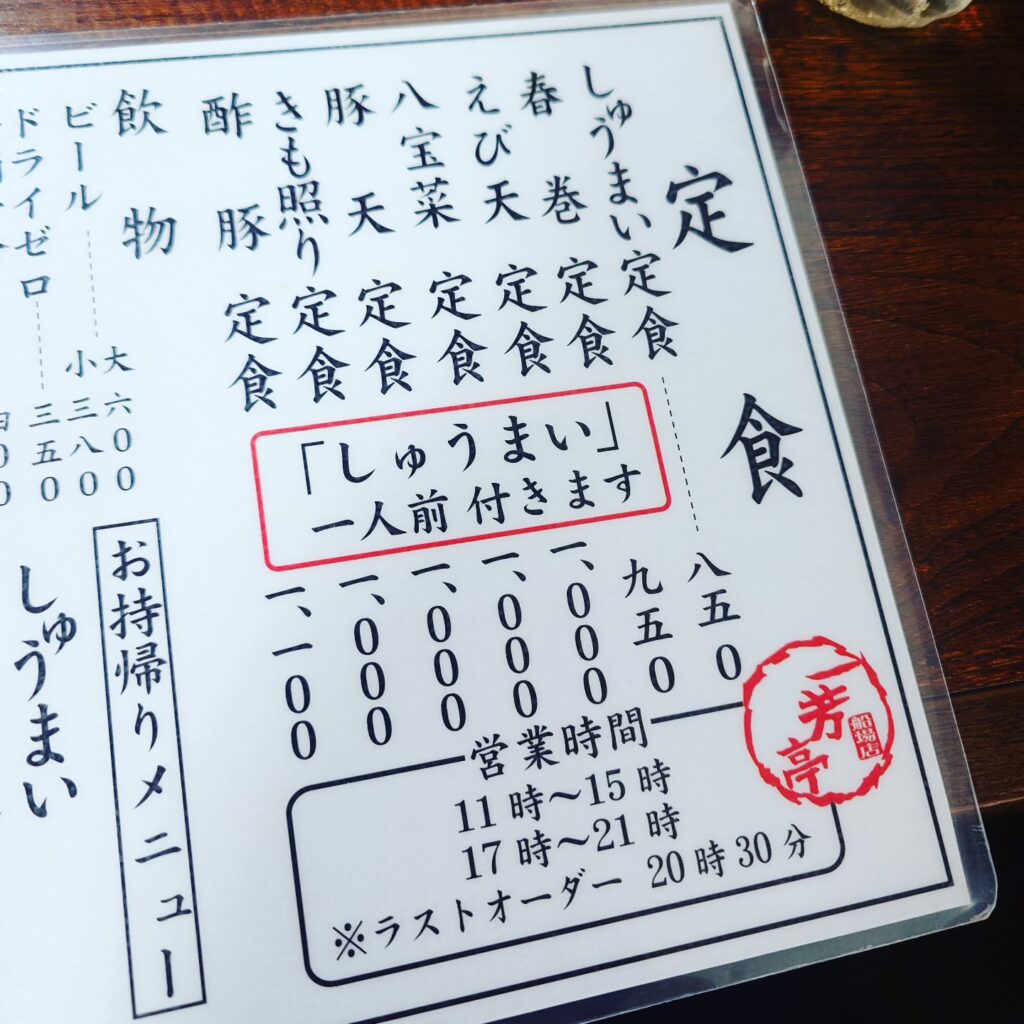 定食
しゅうまい定食 八五0
春巻定食 九五0
えび天定食 一、000
八宝菜定食 一、000
豚天定食 一、000
きも照り定食 一、000
酢豚定食 一、一00
「しゅうまい」
一人前 付きます
営業時間
11時〜15時
17時〜21時
※ラストオーダー 20時30分
一芳亭
船場店
飲物
ビール 大 六00
小 三八0
ドライゼロ 三五0
お持帰りメニュー
しゅうまい